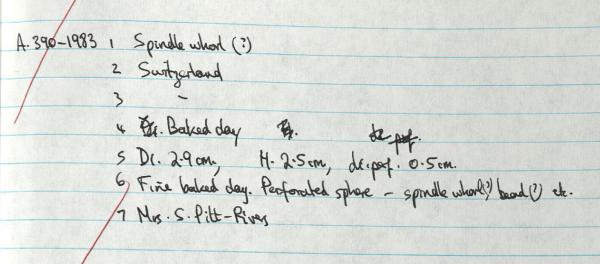 A.390-1983 1 Spindle whorl (?)
2 Switzerland
3 -
4 Baked clay
5 Di. 2.9cm, H. 2.5cm, di.perf. 0.5cm.
6 Fine baked clay. Perforated sphere - spindle whorl(?) bead(?) etc.
7 Mrs. S. Pitt-Rivers